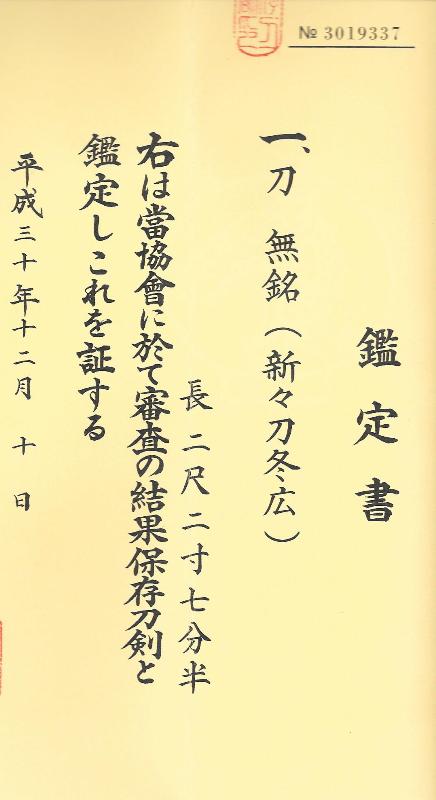 № 3019337
鑑定書
一、刀 無銘(新々刀冬広)
長 二尺二寸七分半
右は當協會に於て審査の結果保存刀剣と
鑑定しこれを証する
平成三十年十二月 十 日